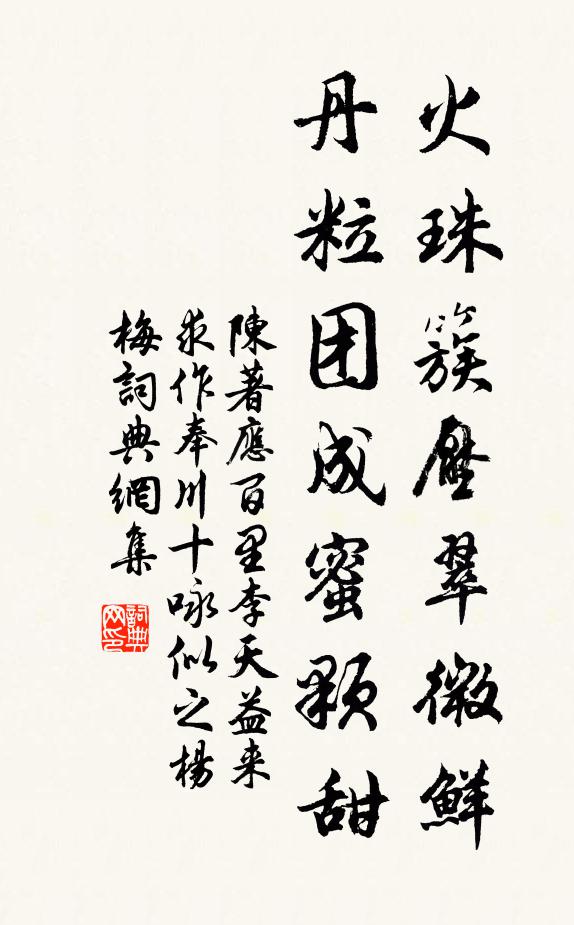 火珠簇壓翠微鮮
丹粒团成蜜顆甜
陳著應百里李天益来
求作奉川十咏似之楊
梅詞典網集
詞典
网印